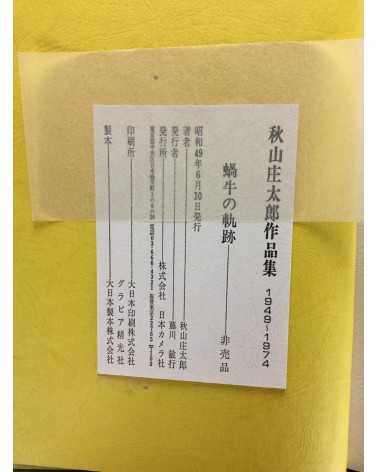 秋山庄太郎作品集 1949〜1974
蝸牛の軌跡――非売品
昭和49年6月10日発行
著者――秋山庄太郎
発行者――藤川 敏行
発行所――株式会社 日本カメラ社
印刷所――大日本印刷株式会社
グラビア精光社
製本――大日本製本株式会社